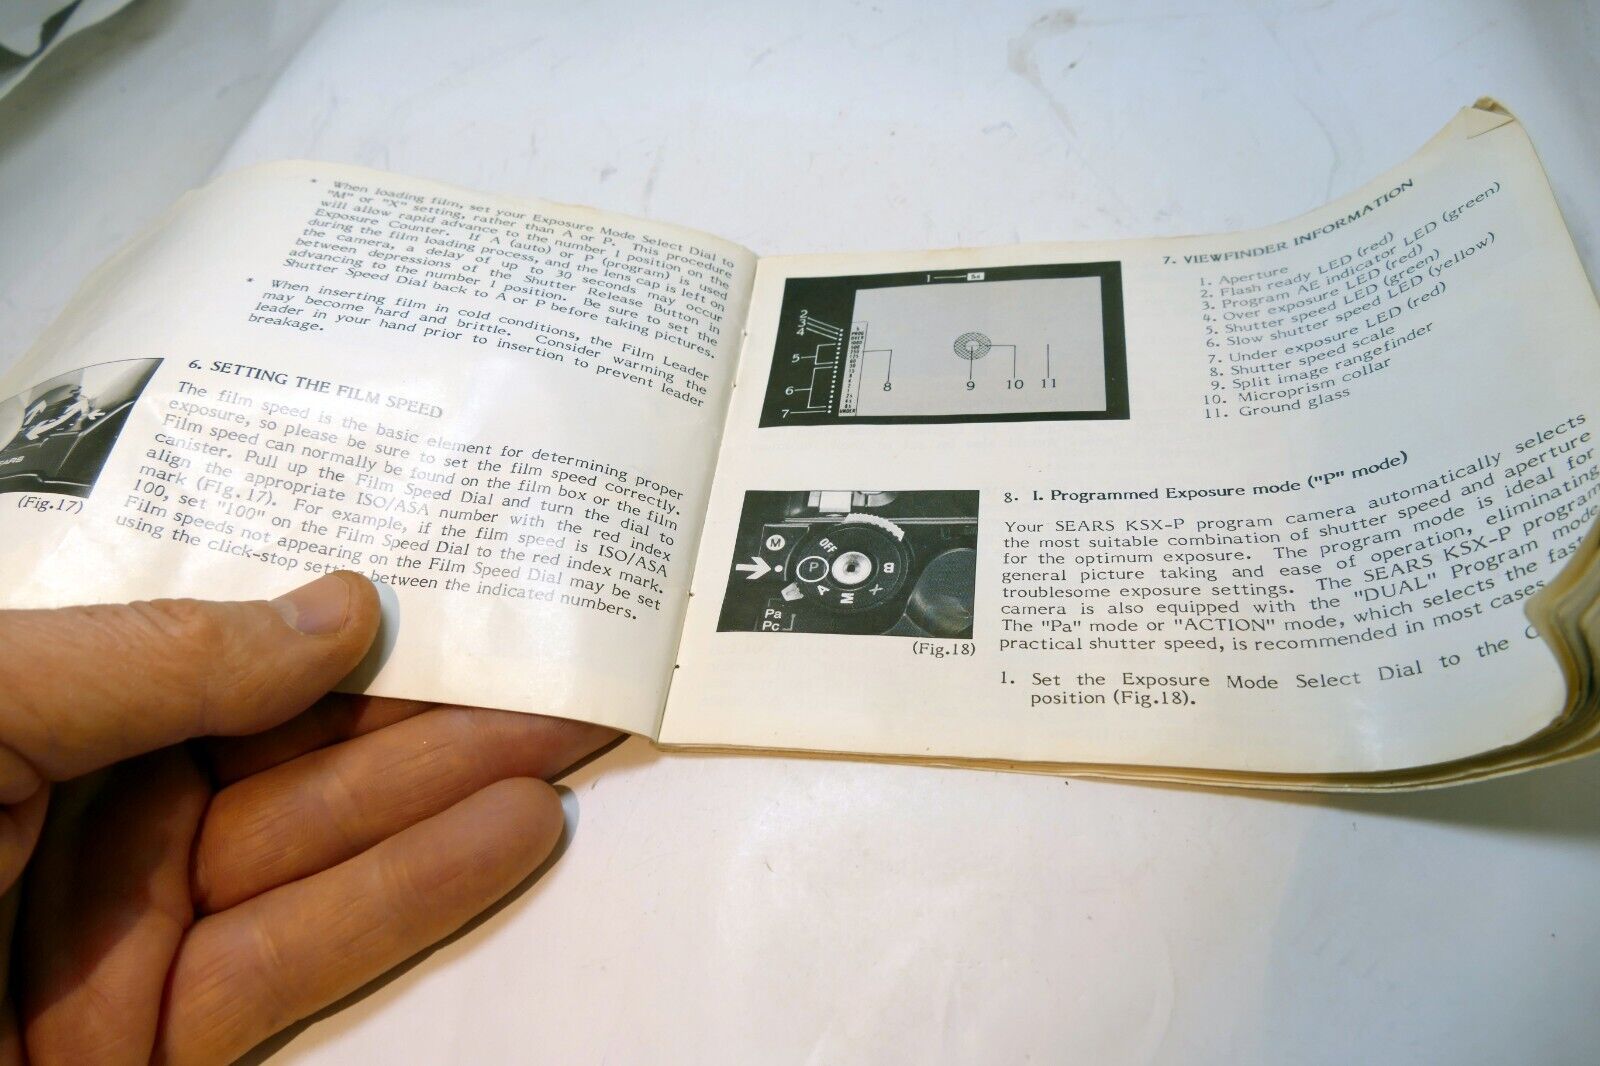 * When loading film, set your Exposure Mode Select Dial to
"M" or "X" setting, rather than A or P. This procedure
will allow rapid advance to the number 1 position on the
Exposure Counter. If A (auto) or P (program) is used
during the film loading process, and the lens cap is left on
the camera, a delay of up to 30 seconds may occur
between depressions of the Shutter Release Button in
advancing to the number 1 position. Be sure to set the
Shutter Speed Dial back to A or P before taking pictures.
* When inserting film in cold conditions, the Film Leader
may become hard and brittle. Consider warming the
leader in your hand prior to insertion to prevent leader
breakage.
6. SETTING THE FILM SPEED
The film speed is the basic element for determining proper
exposure, so please be sure to set the film speed correctly.
Film speed can normally be found on the film box or the film
canister. Pull up the Film Speed Dial and turn the dial to
align the appropriate ISO/ASA number with the red index
mark (Fig. 17). For example, if the film speed is ISO/ASA
100, set "100" on the Film Speed Dial to the red index mark.
Film speeds not appearing on the Film Speed Dial may be set
using the click-stop setting between the indicated numbers.
(Fig.17)
7. VIEWFINDER INFORMATION
1. Aperture
2. Flash ready LED (red)
3. Program AE indicator LED (green)
4. Over exposure LED (red)
5. Shutter speed LED (green)
6. Slow shutter speed LED (yellow)
7. Under exposure LED (red)
8. Shutter speed scale
9. Split image rangefinder
10. Microprism collar
11. Ground glass
1
2
3
4
5
6
7
8
9
10
11
PROG
OVER
UNDER
8. I. Programmed Exposure mode ("P" mode)
Your SEARS KSX-P program camera automatically selects
the most suitable combination of shutter speed and aperture
for the optimum exposure. The program mode is ideal for
general picture taking and ease of operation, eliminating
troublesome exposure settings. The SEARS KSX-P program
camera is also equipped with the "DUAL" Program mode
The "Pa" mode or "ACTION" mode, which selects the
practical shutter speed, is recommended in most cases.
1. Set the Exposure Mode Select Dial to the
position (Fig.18).
M
OFF
P
A
M
X
B
Pa
Pc
(Fig.18)